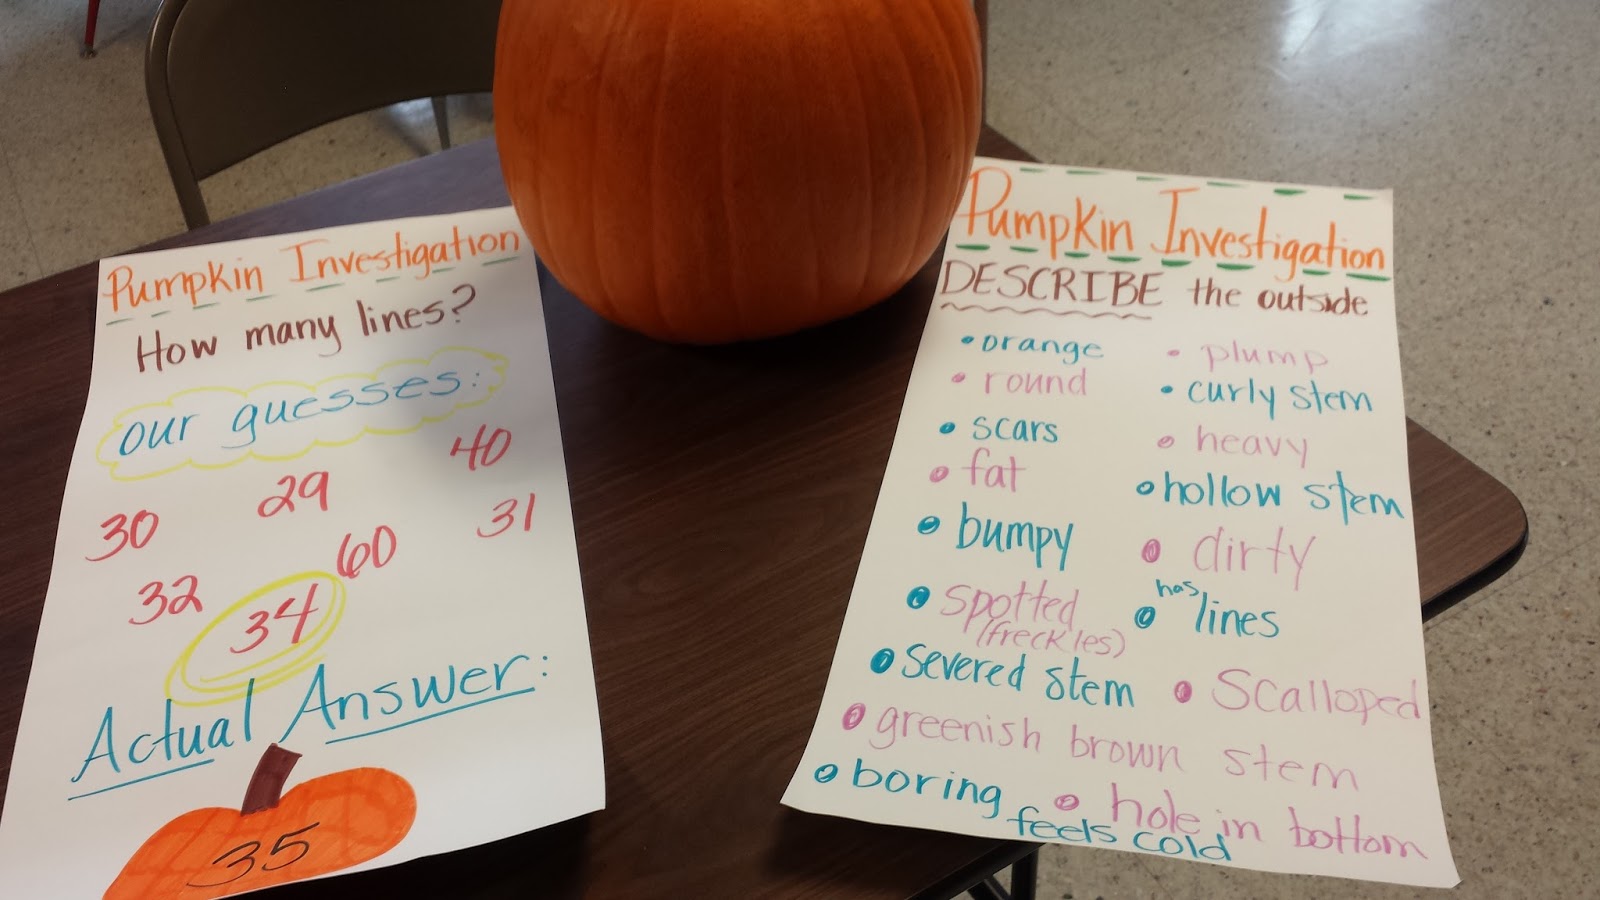 Pumpkin Investigation
How many lines?
our guesses:
30 29 40
32 60 31
34
Actual Answer:
35
Pumpkin Investigation
DESCRIBE the outside
• orange • plump
• round • curly stem
• scars • heavy
• fat • hollow stem
• bumpy • dirty
• spotted (freckles) • has lines
• severed stem • Scalloped
• greenish brown stem
• boring • hole in bottom
feels cold